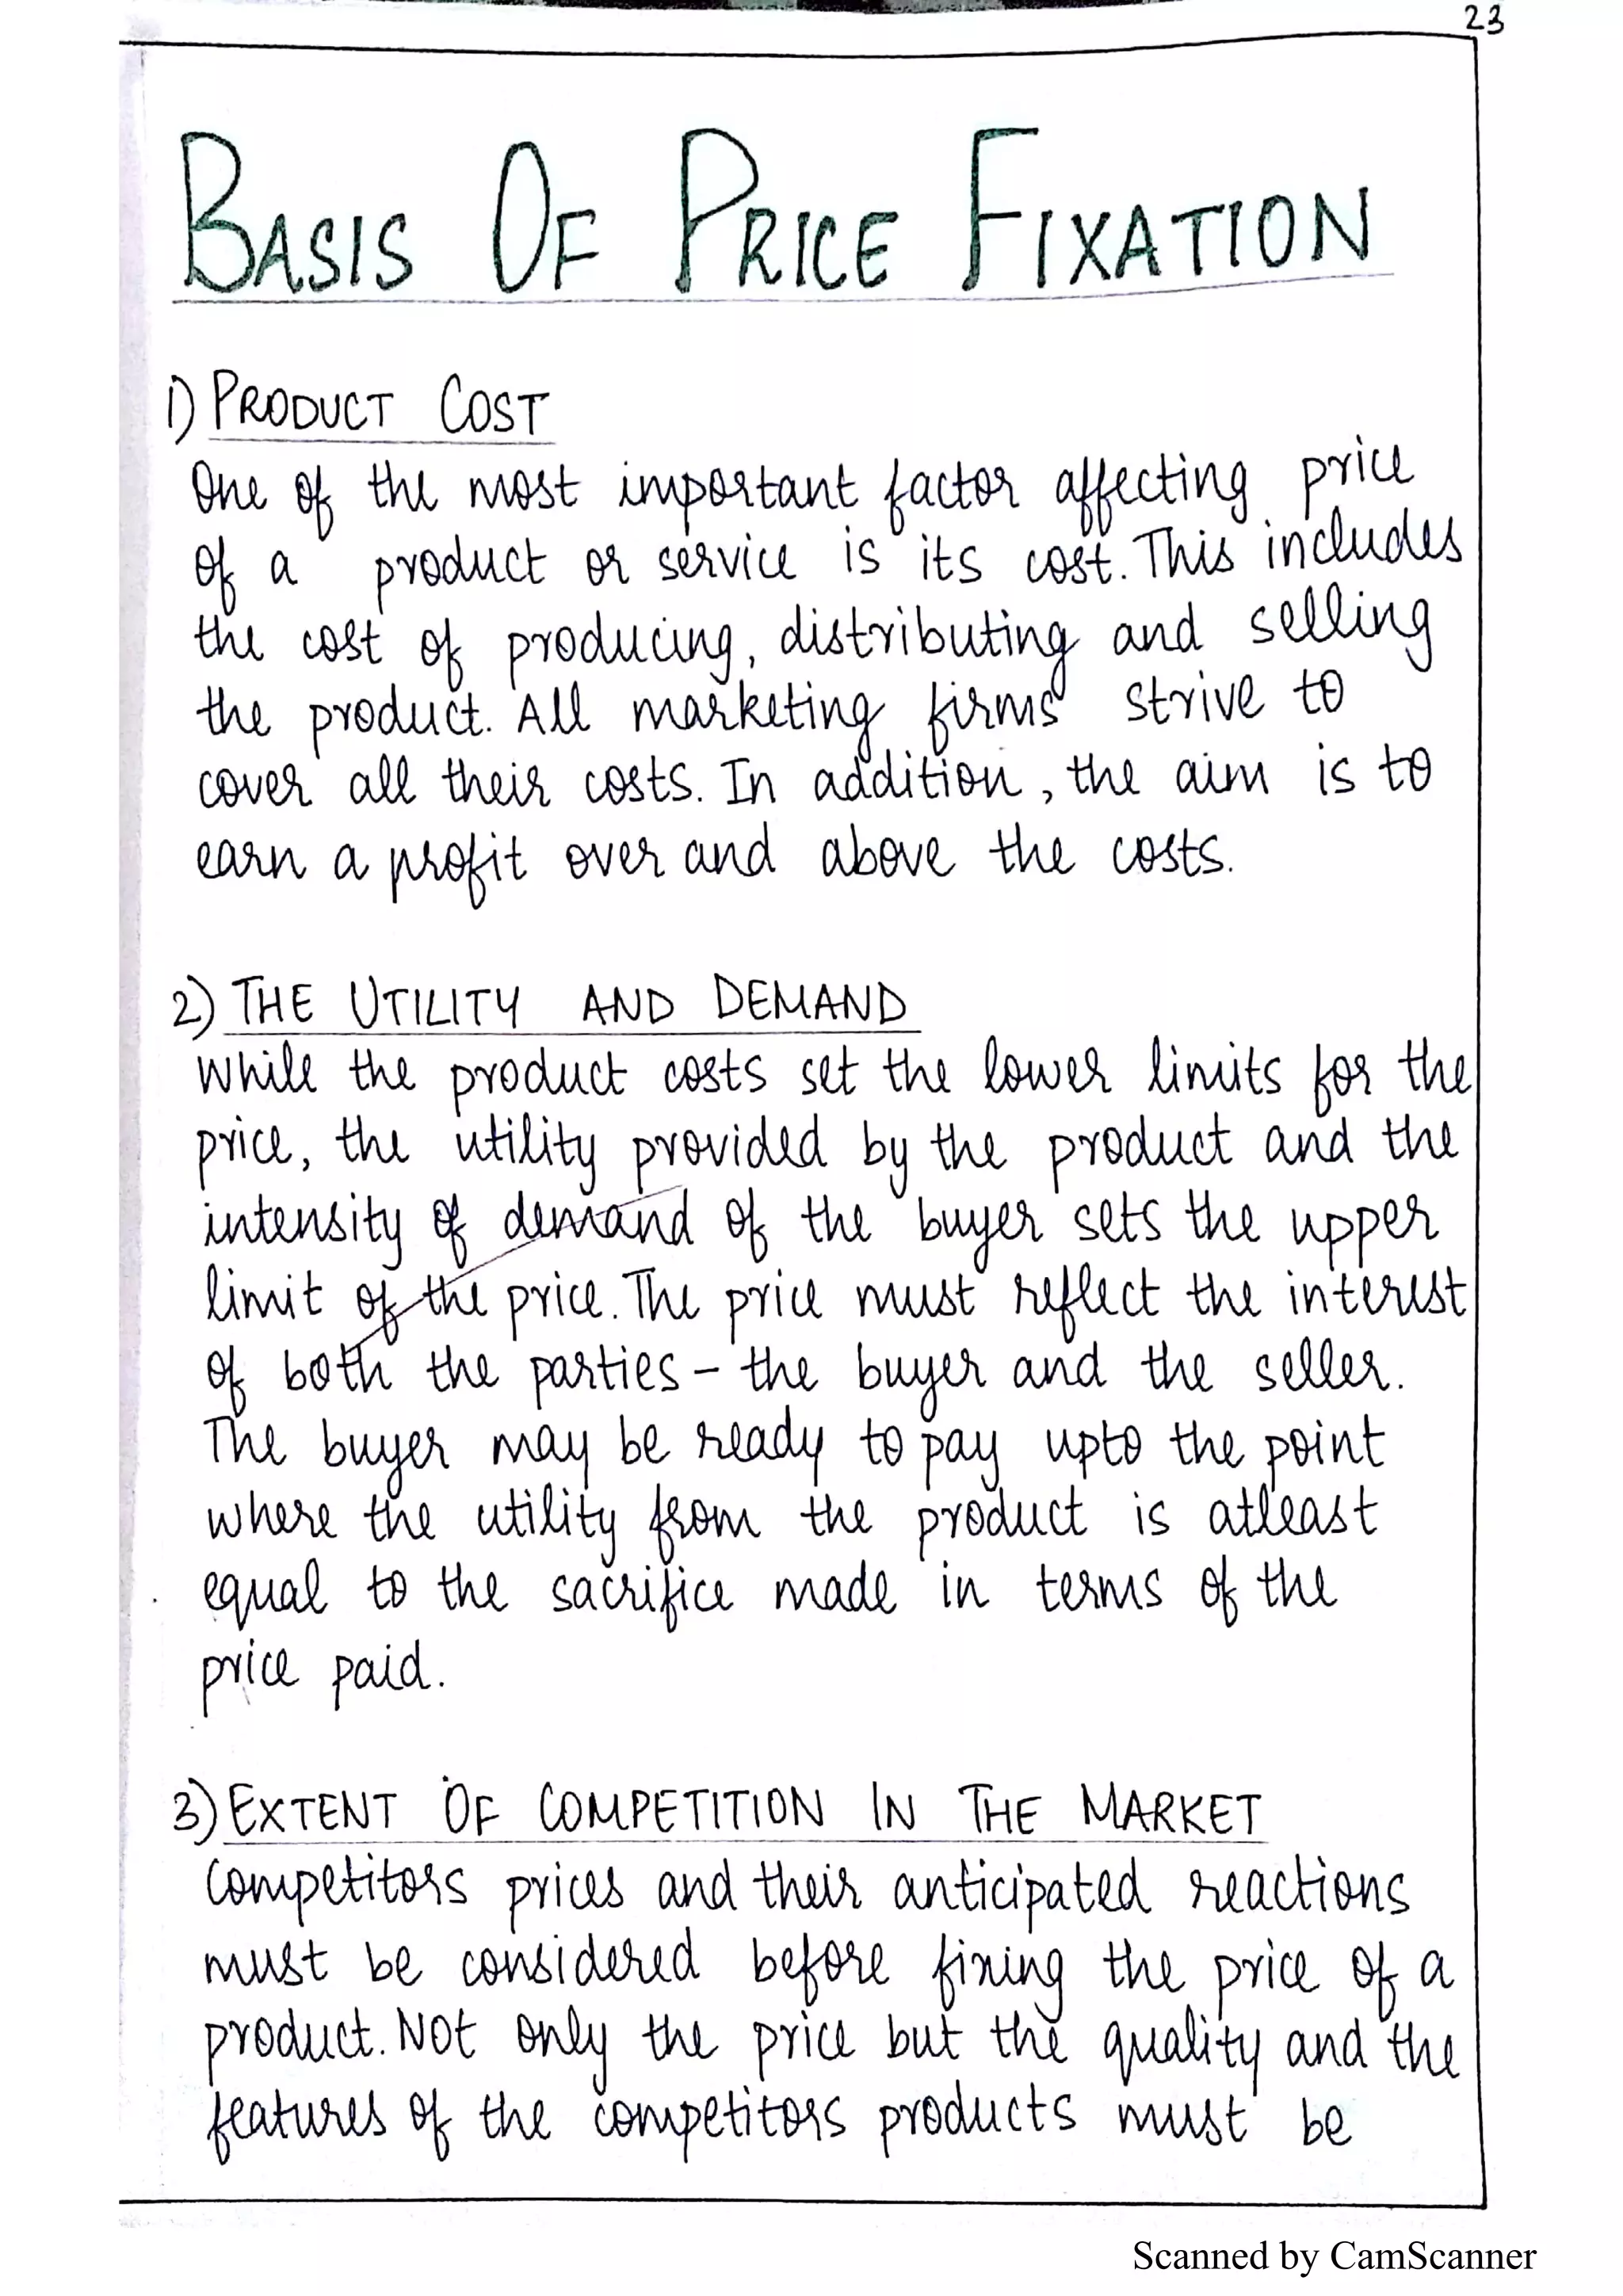 23
BASIS OF PRICE FIXATION
1) PRODUCT COST
One of the most important factor affecting price
of a product or service is its cost. This includes
the cost of producing, distributing and selling
the product. All marketing firms strive to
cover all their costs. In addition, the aim is to
earn a profit over and above the costs.
2) THE UTILITY AND DEMAND
While the product costs set the lower limits for the
price, the utility provided by the product and the
intensity of demand of the buyer sets the upper
limit of the price. The price must reflect the interest
of both the parties - the buyer and the seller.
The buyer may be ready to pay upto the point
where the utility from the product is atleast
equal to the sacrifice made in terms of the
price paid.
3) EXTENT OF COMPETITION IN THE MARKET
Competitors prices and their anticipated reactions
must be considered before fixing the price of a
product. Not only the price but the quality and the
features of the competitors products must be
Scanned by CamScanner